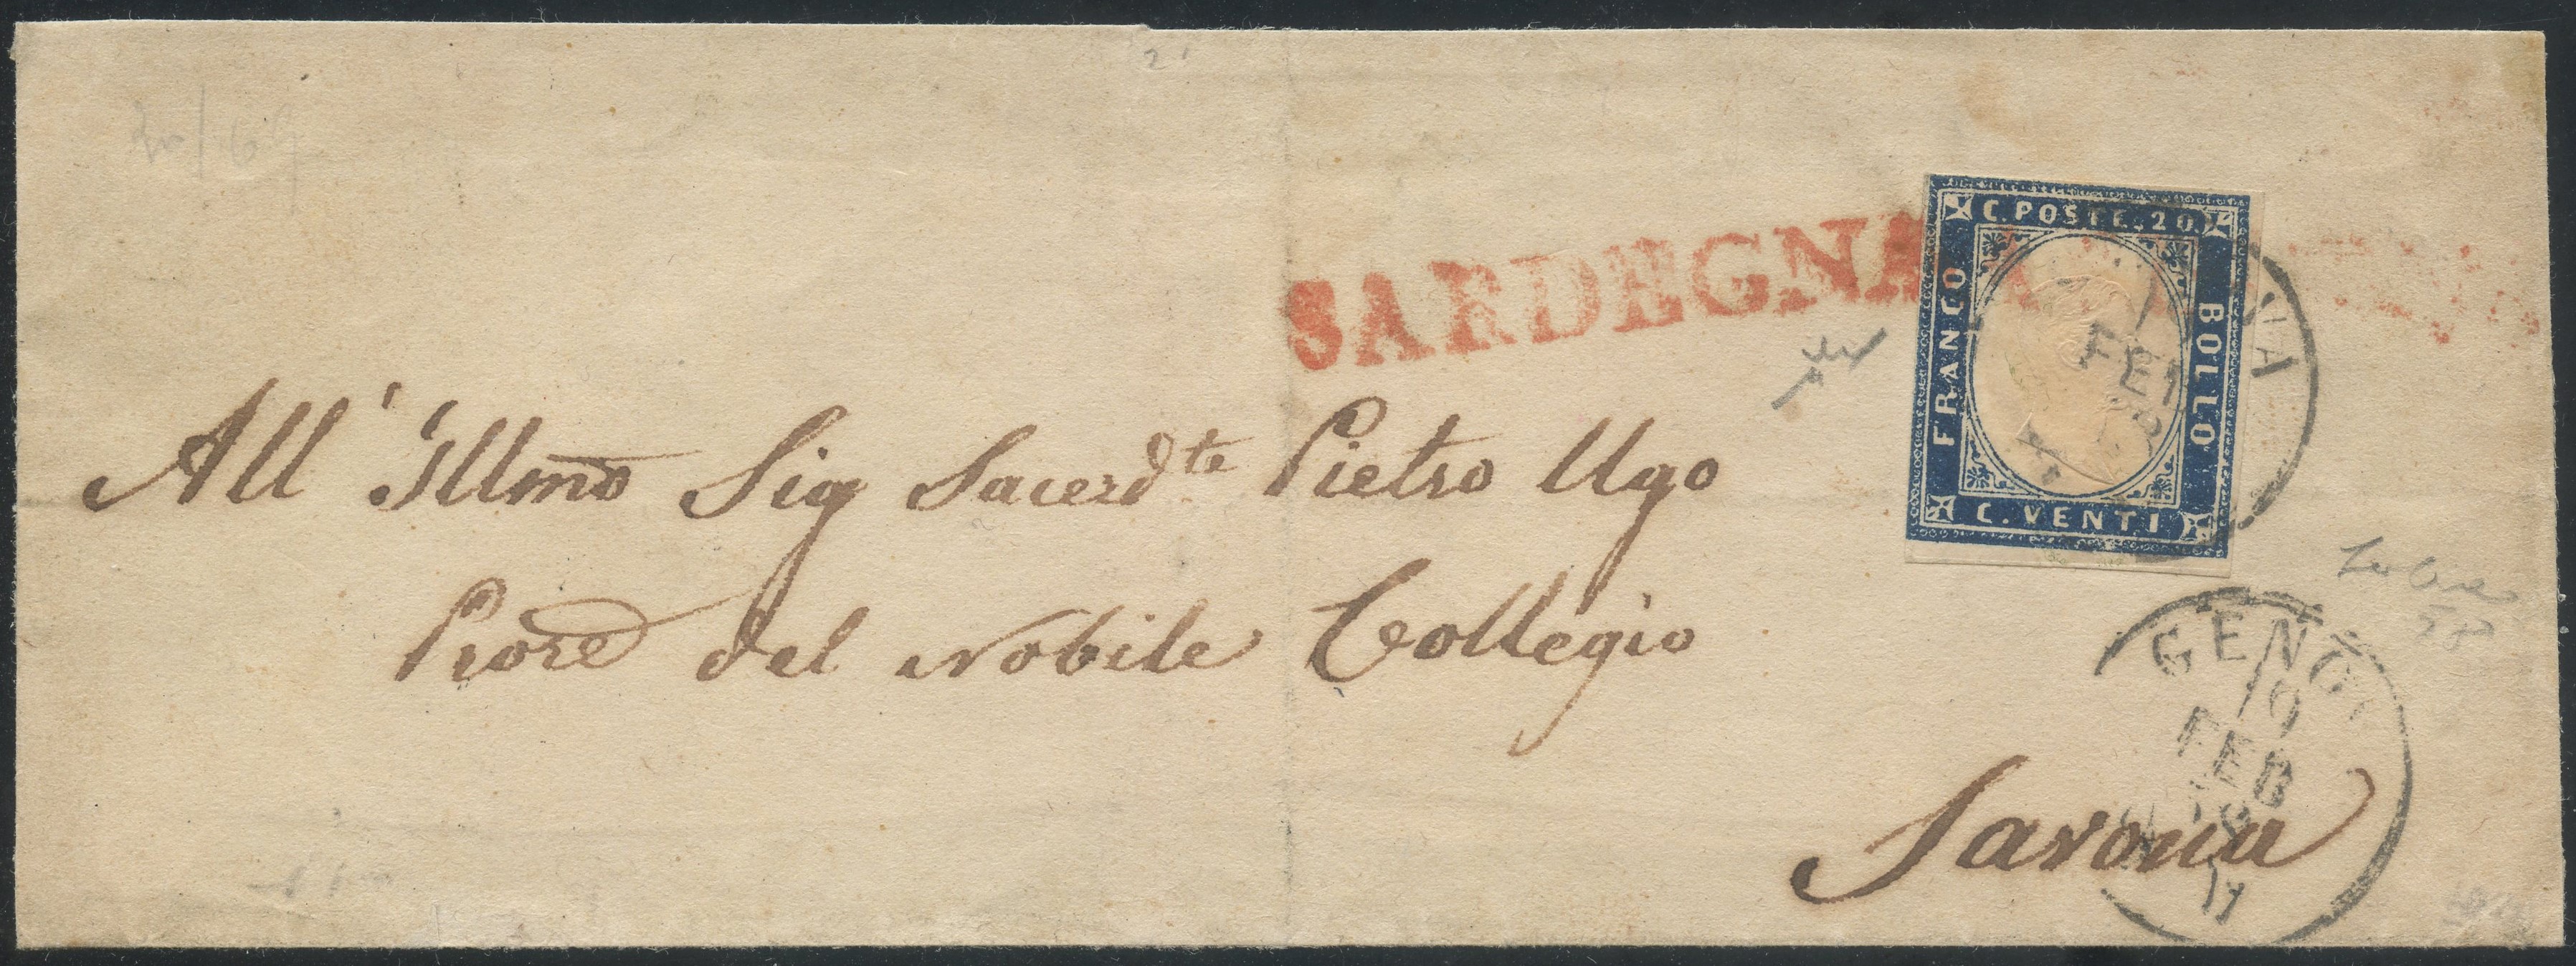 SARDEGNA
C. POSTE. 20
FRANCO
BOLLO
C. VENTI
FEB
All' Illmo Sig Sacerdte Pietro Ugo
Prore del Nobile Collegio
Savona
GENOVA
10
FEB